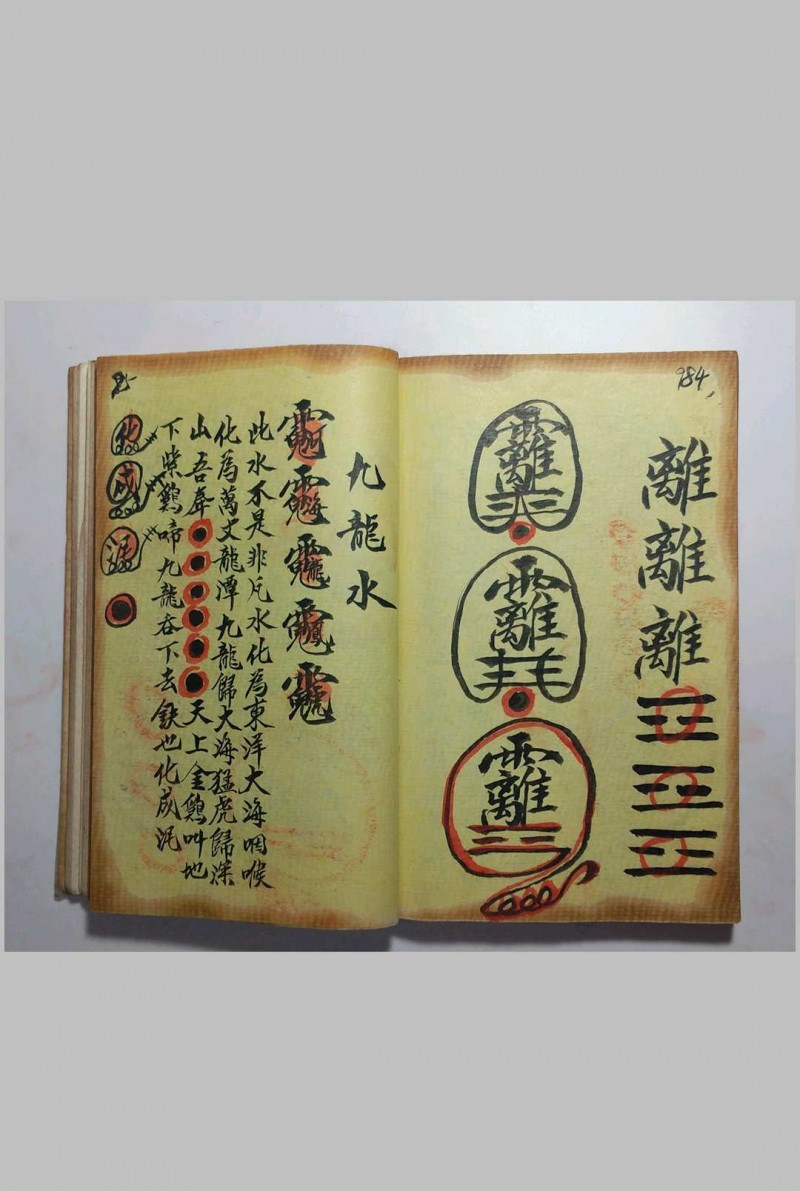 984
離離離
九龍水
此水不是非凡水化為東洋大海咽喉
化為萬丈龍潭九龍歸大海猛虎歸深
山吾奉●●●●●●天上金鷄叫地
下紫鷄啼九龍吞下去鉄也化成泥
成